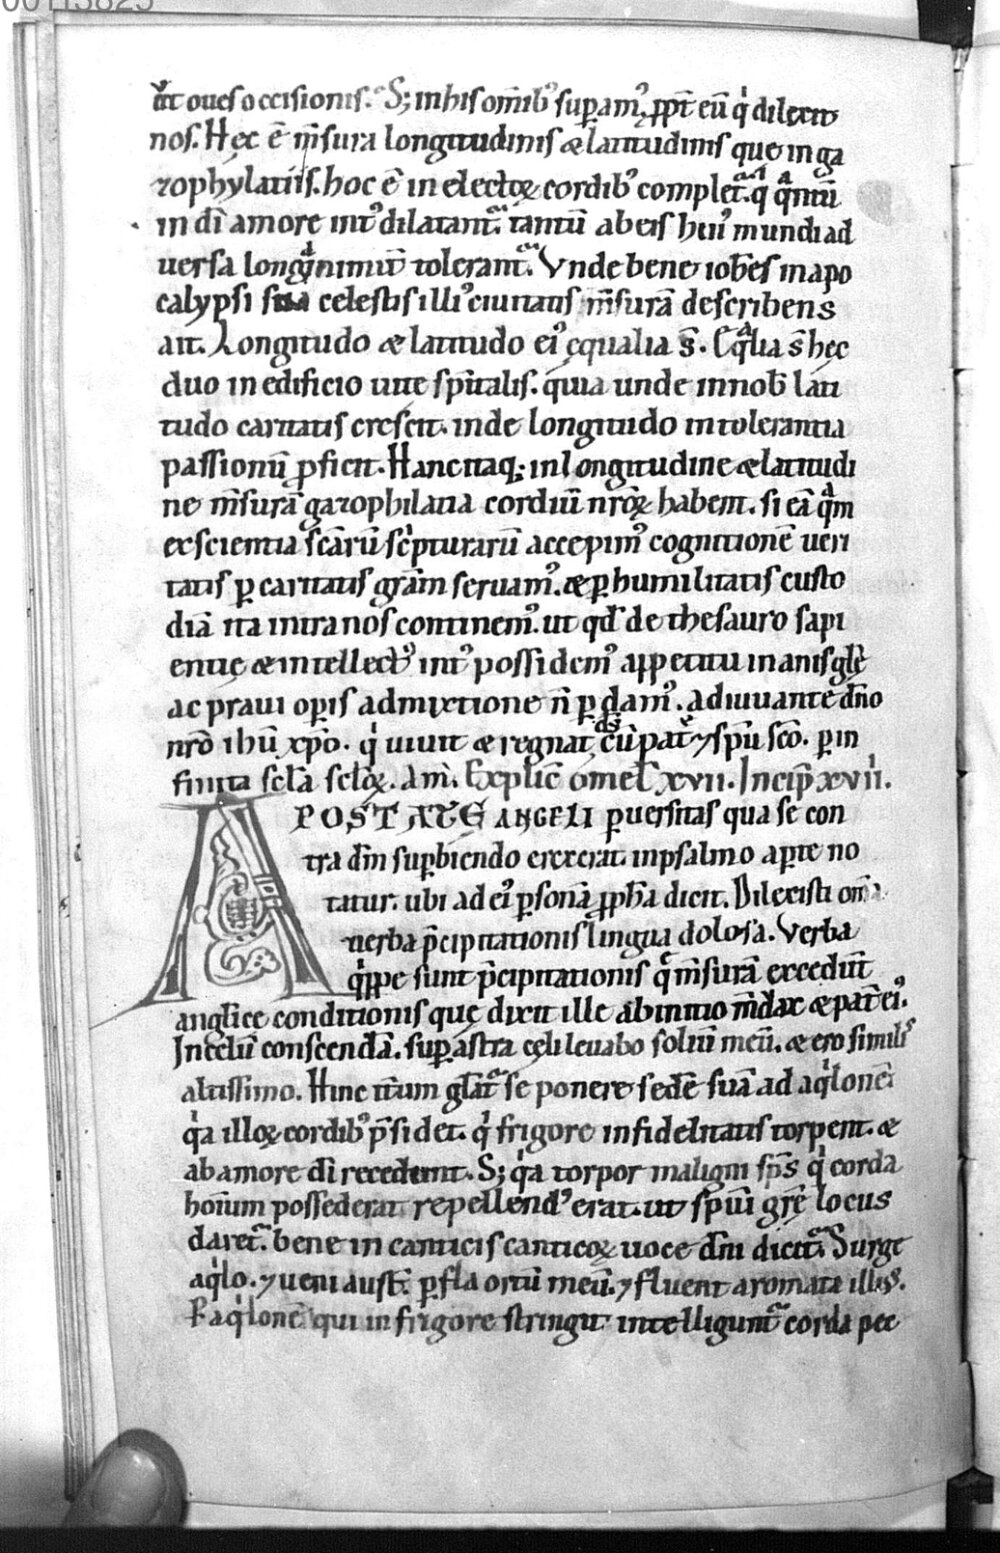 ut oues occisionis. S; in his om̅ib᷒ sup̲am᷒, ꝓpt̅ eū qͥ dilexit
nos. Hęc ē m̅sura longitudinis & latitudinis quo in ga
zophylatiis. hoc ē in electoꝝ cordib᷒ complet᷑. q qͣntū
in dī amore int᷒ dilatant᷑. tantū ab eis hui᷒ mundi ad
uersa longͣnimit̅ tolerant᷑. Vnde bene ioh̅es in apo
calypsi sua celestis illi᷒ ciuitatis m̅surā describens
ait. Longitudo & latitudo ei᷒ ęqualia s̅. Eqͣlia s̅ hęc
duo in edificio uite sp̅italis. quia unde in nob̅ lati
tudo caritatis crescit. inde longitudo in tolerantia
passionū ꝓficit. Hanc itaq; in longitudine & latitudi
ne m̅surā gazophilatia cordiū nr̅oꝝ habent. si eā qͣm
ex scientia scārū sc̅pturarū accepim᷒ cognitionē ueri
tatis ꝑ caritatis gr̅am seruam᷒. & ꝑ humilitatis custo
diā ita intra nos continem᷒. ut qd̅ de thesauro sapi
entię & intellect᷒ int᷒ possidem᷒ appetitu inanis gl̅ę
ac praui op̲is admixtione n̅ ꝑdam᷒. adiuuante dn̅o
nr̅o ihū xp̅o. qͥ uiuit & regnat cū pat̅ ⁊ sp̅u sc̅o. ꝑ in
finita scl̅a scl̅oꝝ. am̅. Explic̅ omel̅ xvii. Incip̅ xviii.
APOSTATĘ ANGELI ꝑuersitas qua se con
tra dm̅ sup̲biendo erexerat. in psalmo ap̲te no
tatur. ubi ad ei᷒ ꝑsonā ꝓph̅a dicit. Dilexisti om̅a
uerba p̅cipitationis lingua dolosa. Verba
qͥppe sunt p̅cipitationis qͥ m̅surā excedunt̅
anglicę conditionis quę dixit ille ab initio m̅dax & pat̅ ei᷒.
In celū conscendā. sup̲ astra cęli leuabo soliū meū. & ero simil᷒
altissimo. Hinc it̅um gl̅at᷑ se ponere sedē suā ad aqͥlonē
qͥa illoꝝ cordib᷒ p̅sidet. qͥ frigore infidelitatis torpent. &
ab amore dī recedunt. S; qͥa torpor maligni sp̅s qͥ corda
hoīum possederat repellend᷒ erat. ut sp̅ui gr̅ę locus
daret᷑. bene in canticis canticoꝝ uoce dn̅i dicit᷑. Surge
aqͥlo. ⁊ ueni aust̅. ꝑfla ortū meū. ⁊ fluent aromata illi᷒.
P aqͥlonē qui in frigore stringit intelligunt᷑ corda pec